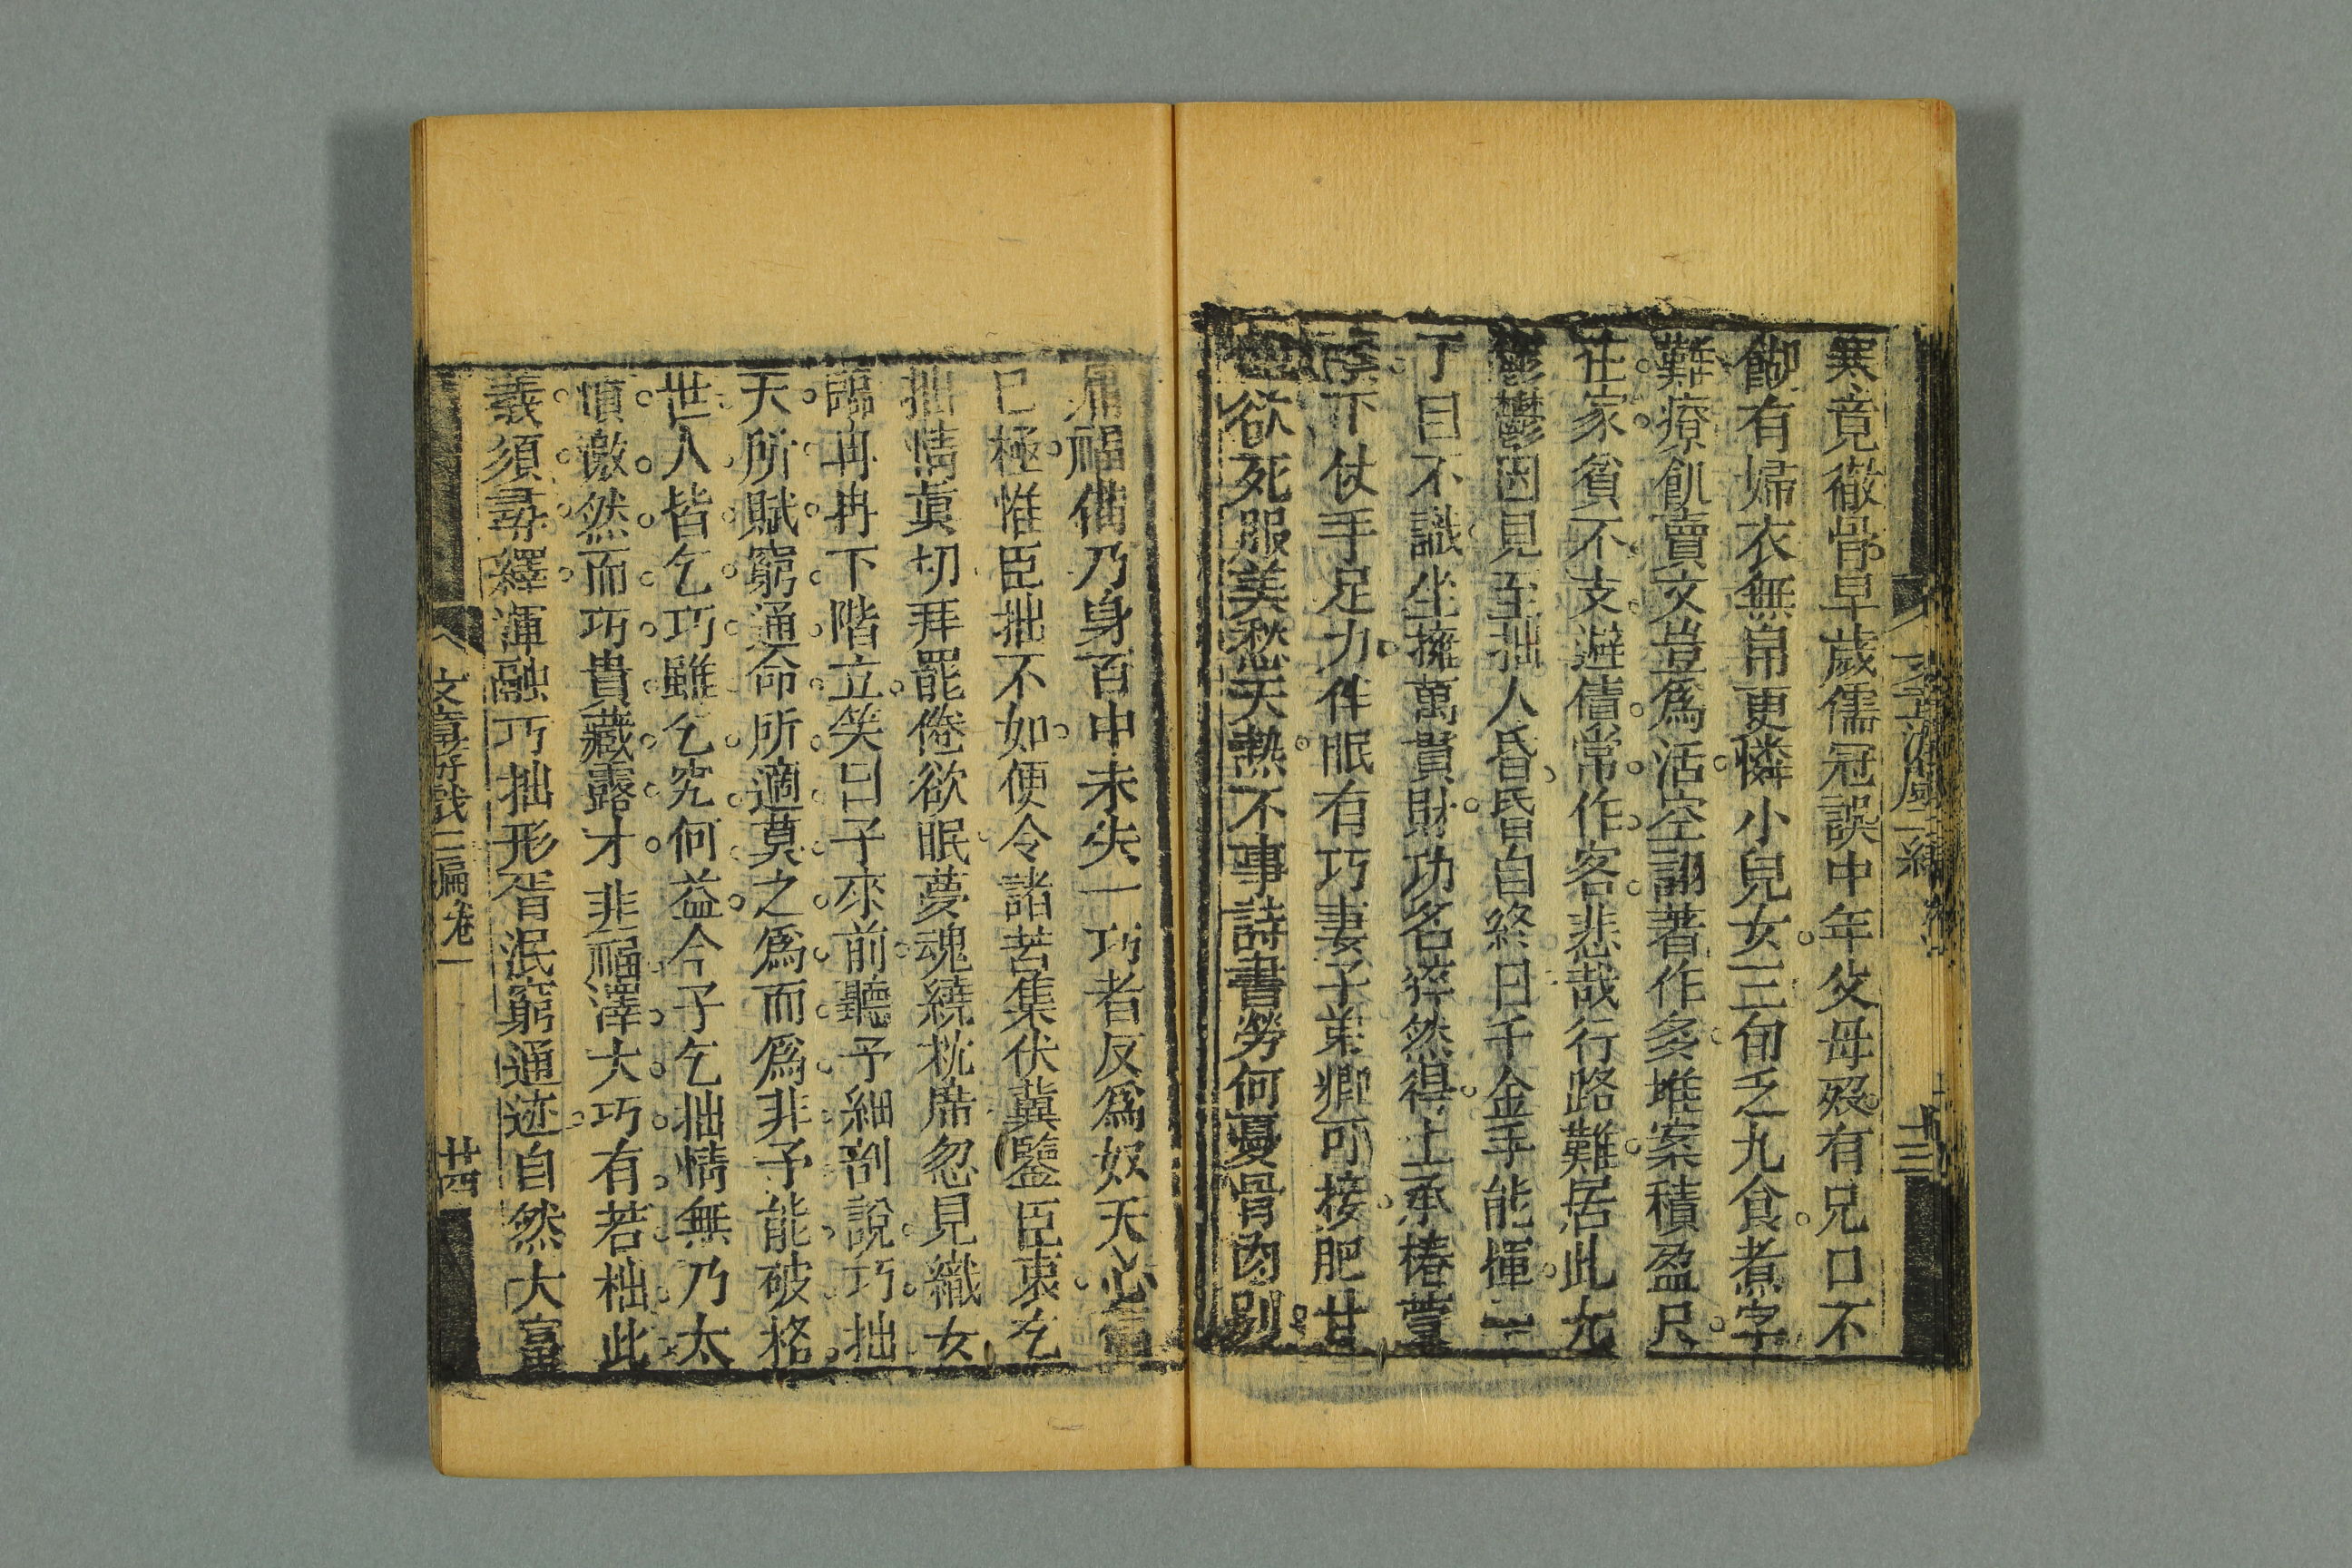 寒竟徹骨早歲儒冠誤中年父母歿有兄口不
餬有婦衣無帛更憐小兒女三旬乏九食煮字
難療飢賣文豈爲活空詡著作多堆案積盈尺
在家貧不支避債常作客悲哉行路難居此尤
鬱鬱因見至拙人昏昏自終日千金手能揮一
丁目不識坐擁萬貫財功名猝然得上承椿萱
蔭下仗手足力伴眠有巧妻子弟卿可接肥甘
欲死服美愁天熱不事詩書勞何憂骨肉別
福備乃身百中未失一巧者反爲奴天心信
已極惟臣拙不如便令諸苦集伏冀鑒臣衷乞
拙情眞切拜罷倦欲眠夢魂繞枕席忽見織女
臨冉冉下階立笑曰子來前聽予細剖說巧拙
天所賦窮通命所適莫之爲而爲非予能破格
世人皆乞巧雖乞究何益今子乞拙情無乃太
憤激然而巧貴藏露才非福澤大巧有若拙此
義須尋繹渾融巧拙形胥泯窮通迹自然大富
文章游戲三編 卷一 廿四